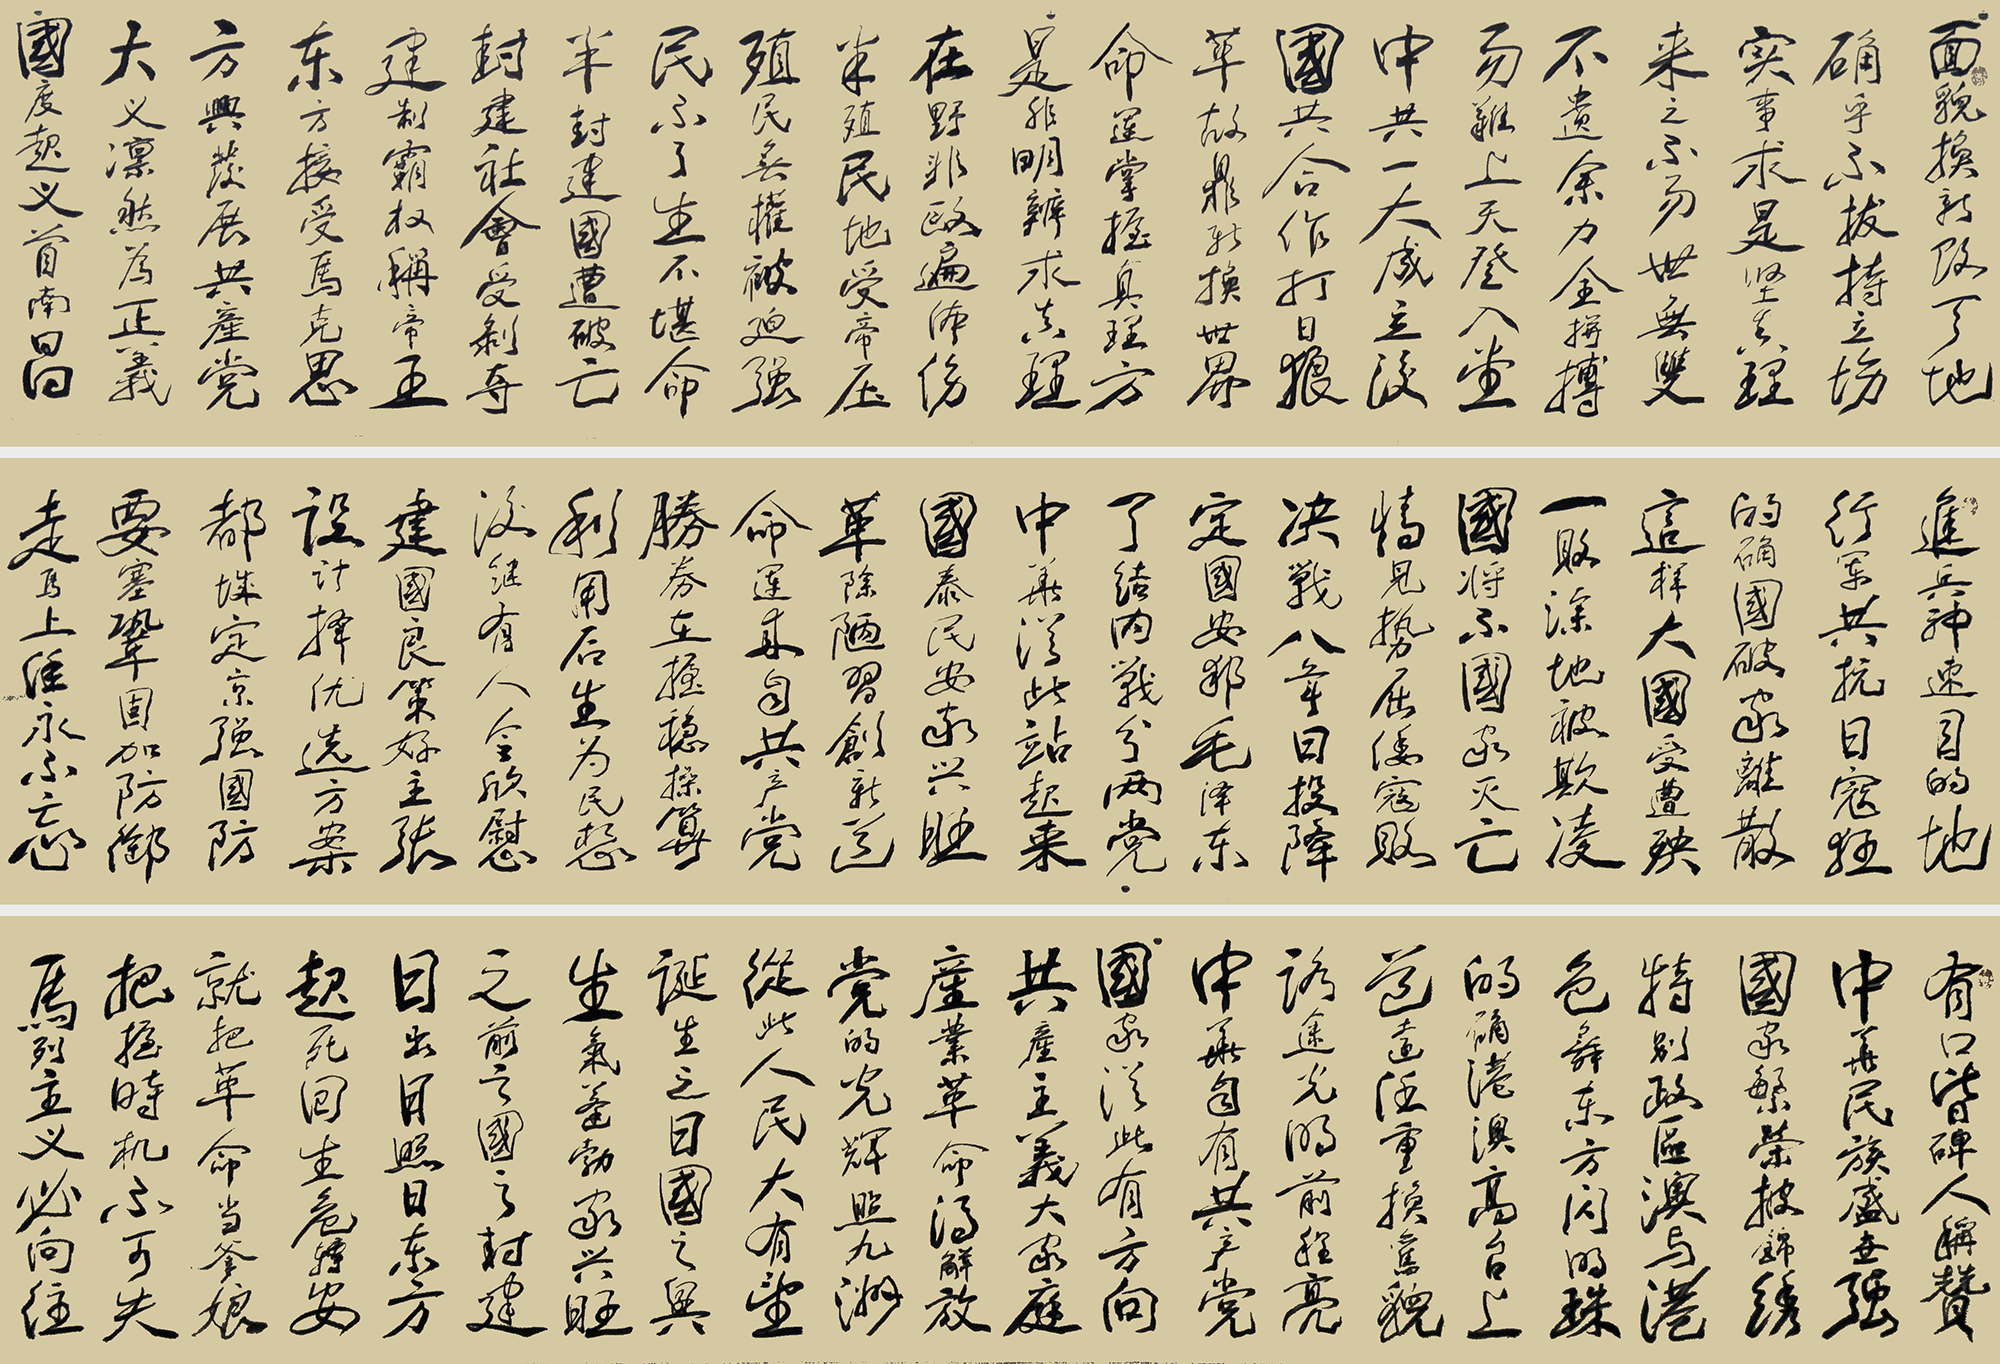 面貌换新改了地
确乎不拔持立场
实事求是坚真理
来之不易世無雙
不遗余力全拼搏
易難上天登入堂
中共一大成立后
國共合作打日狼
革故鼎新换世界
命運掌握真理方
是非明辨求真理
在野非政遍体伤
半殖民地受帝压
殖民無權被迫强
民不了生不堪命
半封建國遭破亡
封建社會受剥夺
建制霸权稱帝王
东方接受馬克思
方興發展共產党
大义凛然為正義
國度起义首南昌
進兵神速目的地
行军共抗日寇狂
的确國破家離散
這样大國受遭殃
一败涂地被欺凌
國将不國家灭亡
情見势屈倭寇败
决戰八年日投降
定國安邦毛泽东
了结内戰分两党
中華從此站起来
國泰民安家兴旺
革除陋習創新道
命運来自共产党
勝券在握稳操算
利用后生为民想
后继有人全欣慰
建國良策好主張
設计择优选方案
都城定京强國防
要塞鞏固加防御
走馬上任永不忘
有口皆碑人稱赞
中華民族盛世强
國家繁荣披錦绣
特别政區澳与港
色舞东方闪明珠
的确港澳高台上
道远任重换舊貌
路途光明前程亮
中華自有共产党
國家從此有方向
共產主義大家庭
産業革命得解放
党的光輝照九洲
從此人民大有望
诞生之日國之興
生氣蓬勃家兴旺
之前之國之封建
日出日照日东方
起死回生危轉安
就把革命当爹娘
把握時机不可失
馬列主义必向往